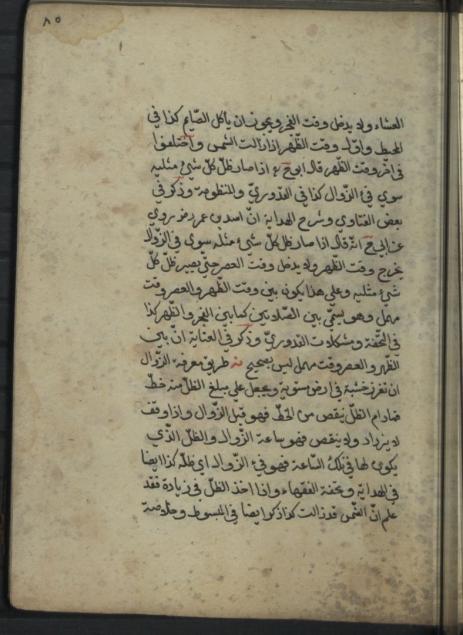 ٨٥
العشاء ولا يدخل وقت الفجر ويجوز ان يأكل الصّايم كذا في
المحيط واوّل وقت الظّهر اذا زالت الشّمس واختلفوا
في آخر وقت الظهر قال ابو ح ره اذا صار ظلّ كلّ شئ مثليه
سوى فئ الزّوال كذا في القدوريّ والمنظومة وذكر في
بعض الفتاوي وشرح الهداية انّ اسد بن عمر رد روى
عن ابي ح انّه قال اذا صار ظل كلّ شئ مثله سوى فئ الزّوال
يخرج وقت الظّهر ولا يدخل وقت العصر حتّى يصير ظلّ كلّ
شئ مثليه وعلى هذا يكون بين وقت الظّهر والعصر وقت
مهمل وهو يسمّى بين الصّلاتين كما بين الفجر والظّهر كذا
في التحفة ومشكلات القدوريّ وذكر في العناية انّ بين
الظّهر والعصر وقت مهمل ليس بصحيح طريق معرفة الزّوال
ان تغرز خشبة في ارض مستوية ويجعل على مبلغ الظلّ منه خطّ
فما دام الظلّ ينقص من الخطّ فهو قبل الزّوال واذا وقف
لا يزداد ولا ينقص فهو ساعة الزّوال والظلّ الّذي
يكون لها في تلك السّاعة فهو فئ الزّوال اي ظلّه كذا ايضا
في الهداية وتحفة الفقهاء واذا اخذ الظلّ في زيادة فقد
علم انّ الشّمس قد زالت كذا ذكر ايضا في المبسوط وخلاصة